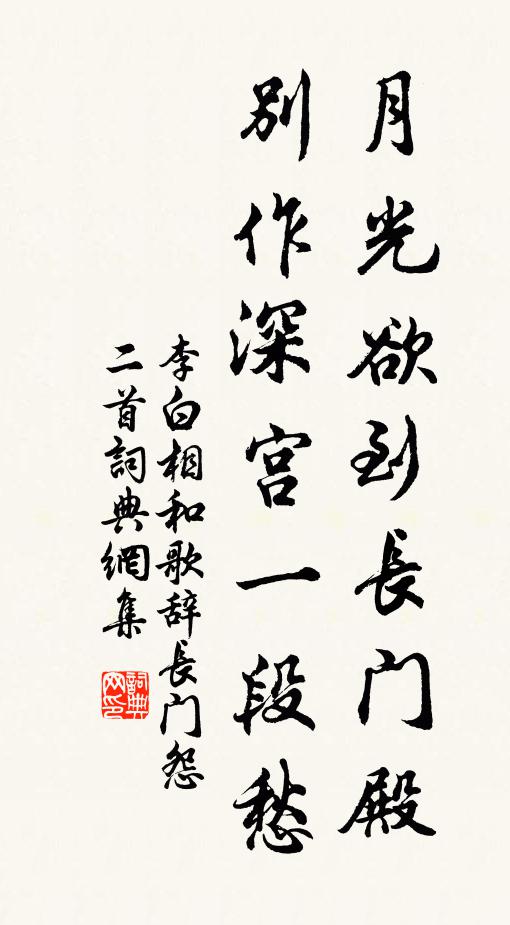 月光欲到長门殿
别作深宫一段愁
李白相和歌辞長门怨
二首詞典網集
詞典
网印